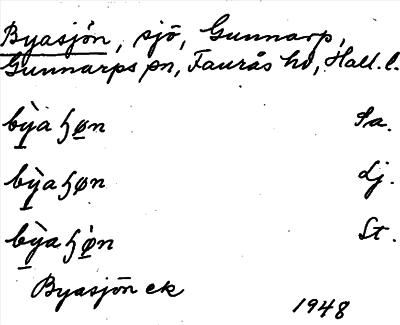 Byasjön, sjö, Gunnarp,
Gunnarps sn, Faurås hd, Hall. l.
bỳa ɧøn Sa.
bỳa ɧøn Lj.
bỳa ɧø̀n St.
Byasjön ek
1948